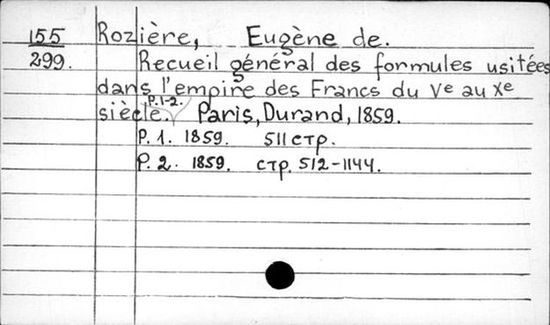 155 Rozière, Eugène de.
299. Recueil général des formules usitées
dans l'empire des Francs du Ve au Xe
P.1-2.
siècle. Paris, Durand, 1859.
P. 1. 1859. 511 стр.
P. 2. 1859. стр. 512-1144.